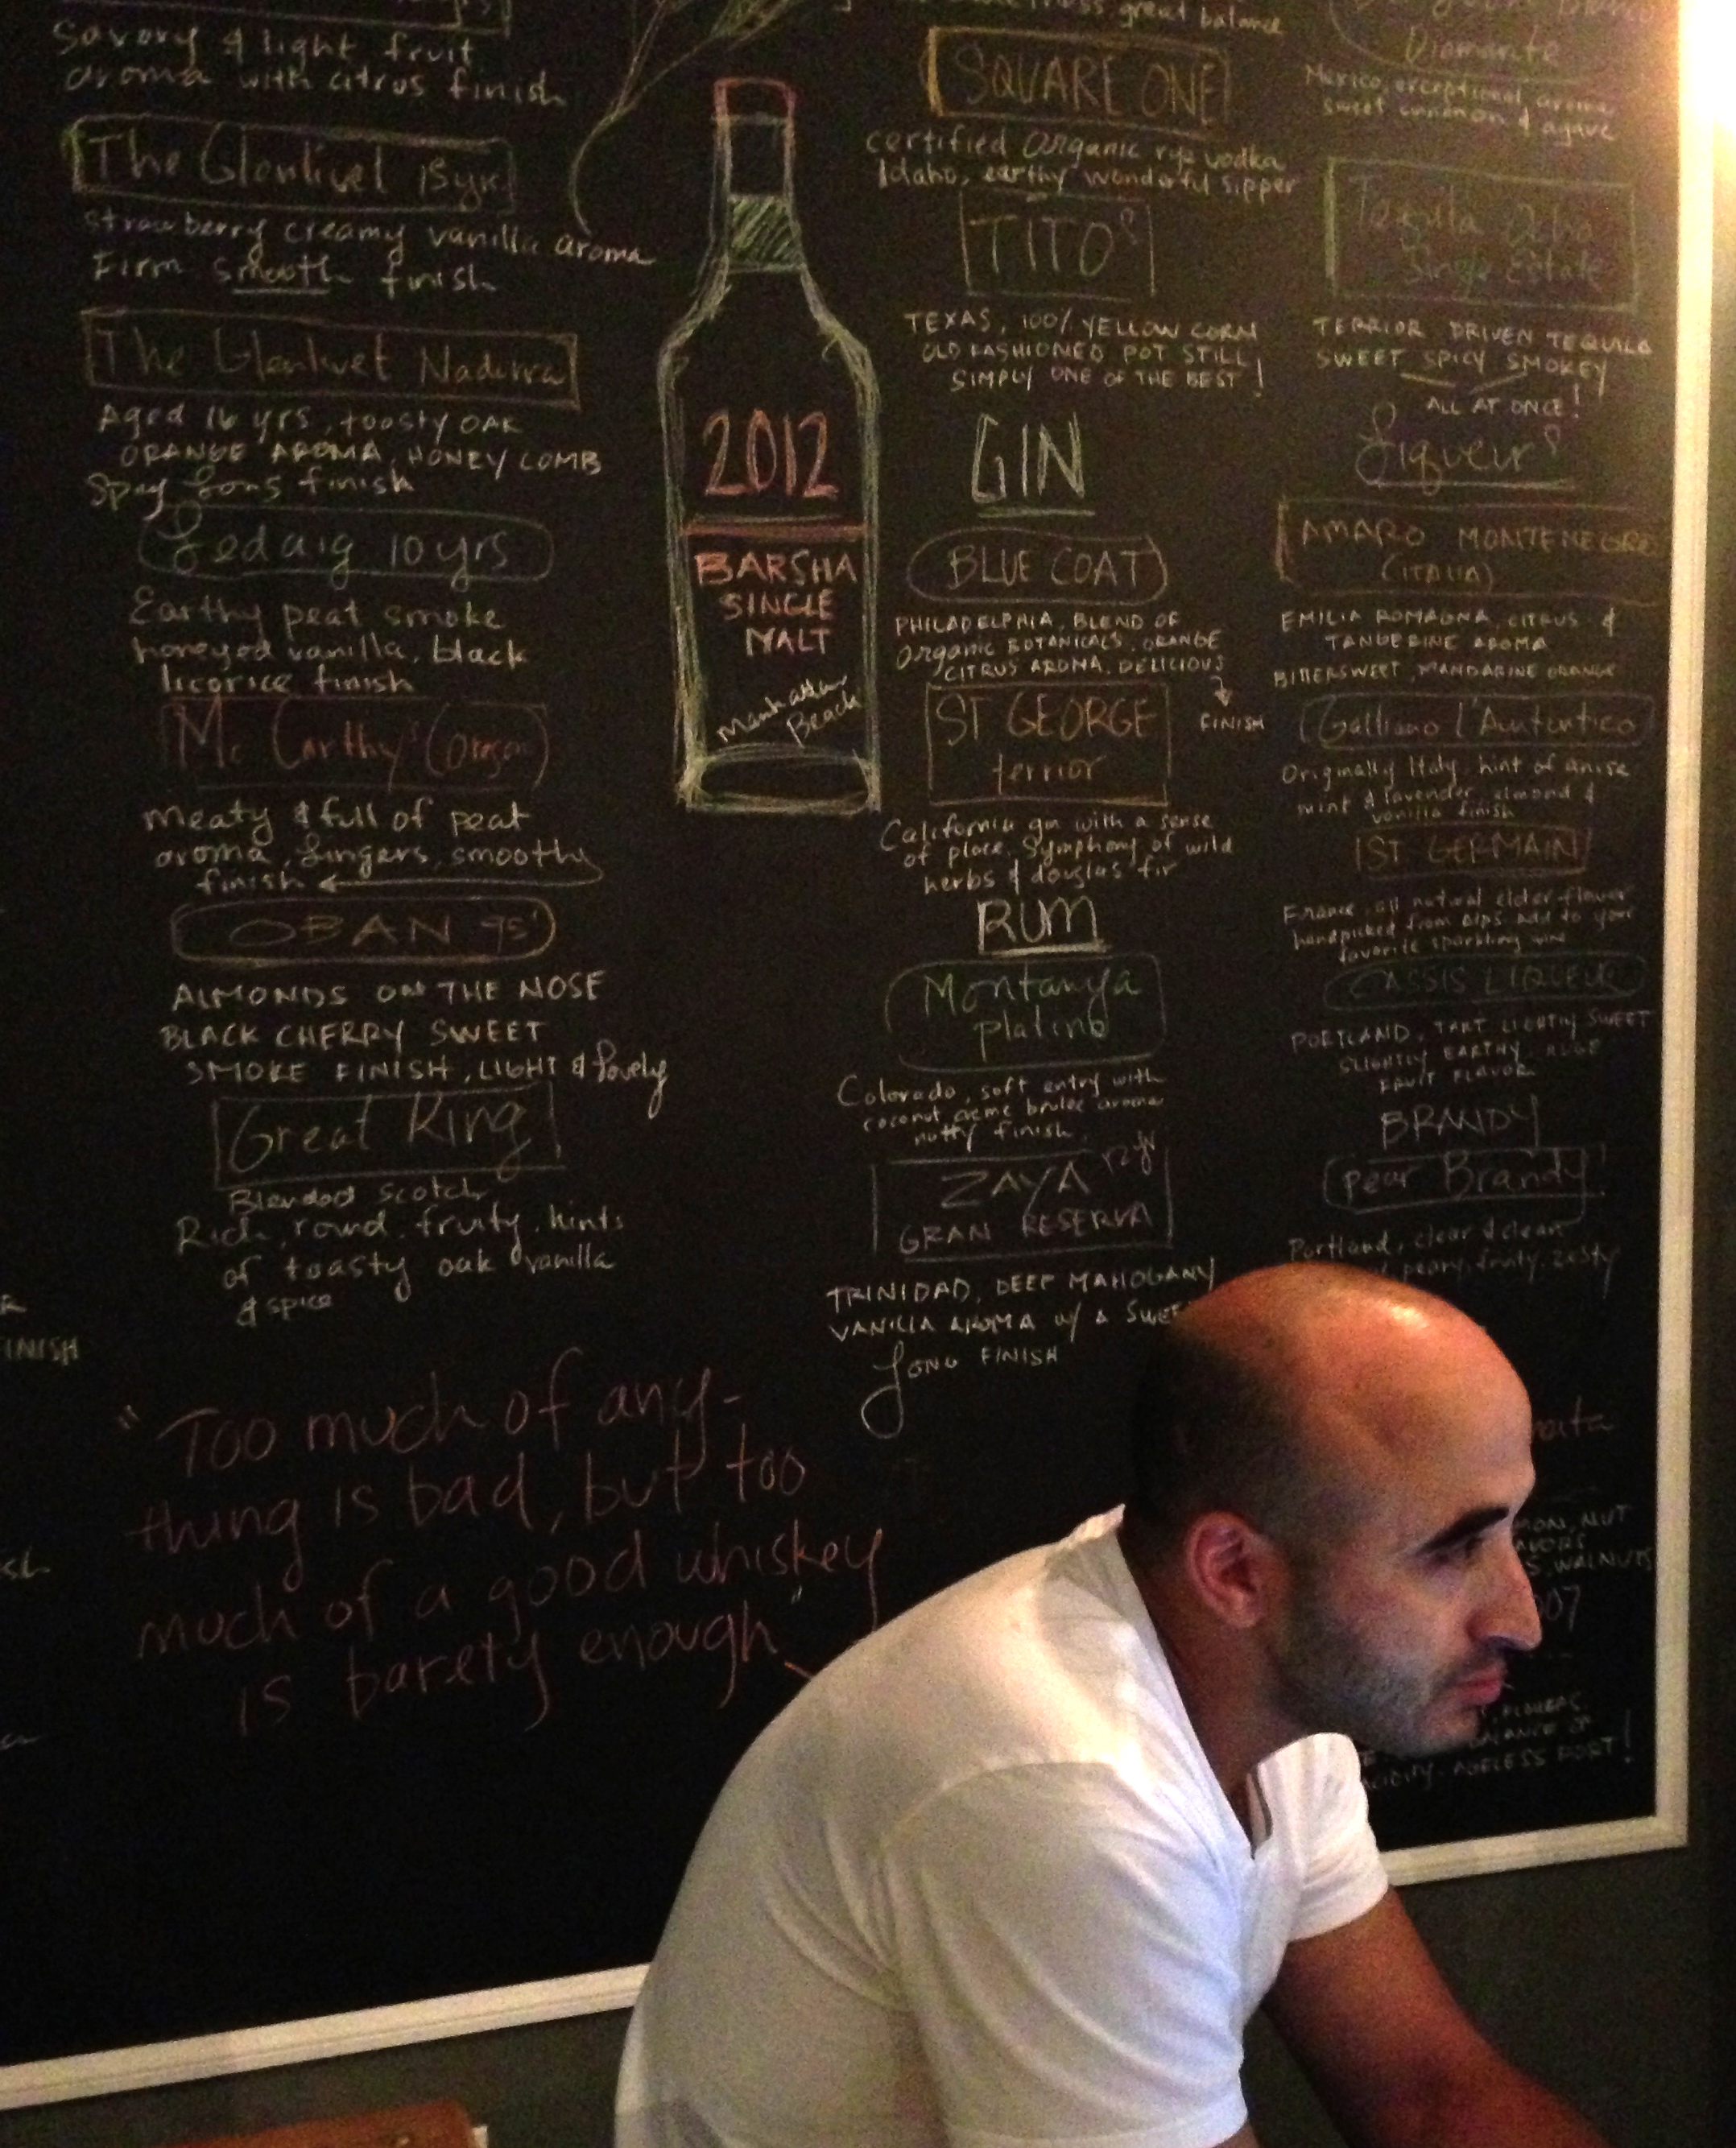 Savory & light fruit
aroma with citrus finish
The Glenlivet 15yr
strawberry creamy vanilla aroma
Firm smooth finish
The Glenlivet Nadurra
Aged 16 yrs, toasty OAK
ORANGE AROMA, HONEY COMB
Spicy Long finish
Ledaig 10 yrs
Earthy peat smoke
honeyed vanilla, black
licorice finish
Mc Carthy's (Oregon)
Meaty & full of peat
aroma, lingers, smooth
finish
OBAN 95'
ALMONDS ON THE NOSE
BLACK CHERRY SWEET
SMOKE FINISH, LIGHT & lovely
Great King
Blended scotch
Rich, round, fruity, hints
of toasty oak vanilla
& spice
FINISH
"Too much of any-
thing is bad, but too
much of a good whiskey
is barely enough"
2012
BARSHA
SINGLE
MALT
Manhattan
Beach
great balance
SQUARE ONE
certified Organic rye vodka
Idaho, earthy wonderful sipper
TITO'S
TEXAS, 100% YELLOW CORN
OLD FASHIONED POT STILL
SIMPLY ONE OF THE BEST!
GIN
BLUE COAT
PHILADELPHIA, BLEND OF
Organic BOTANICALS, ORANGE
CITRUS AROMA, DELICIOUS
FINISH
ST GEORGE
terrior
California gin with a sense
of place. Symphony of wild
herbs & douglas fir
RUM
Montanya
platino
Colorado, soft entry with
coconut creme brulee aroma
nutty finish
ZAYA 12yr
GRAN RESERVA
TRINIDAD, DEEP MAHOGANY
VANILLA AROMA w/ A SWEE
LONG FINISH
Diamante
Mexico, exceptional aroma
sweet cinnamon & agave
Tequila Ocho
Single Estate
TERRIOR DRIVEN TEQUILA
SWEET SPICY SMOKEY
ALL AT ONCE!
Liqueurs
AMARO MONTENEGRO
(ITALIA)
EMILIA ROMAGNA, CITRUS &
TANGERINE AROMA
BITTERSWEET, MANDARINE ORANGE
Galliano l'Autentico
Originally Italy, hint of anise
mint & lavender, almond &
vanilla finish
ST GERMAIN
France, all natural elder flower
handpicked from Alps Add to your
favorite sparkling wine
CASSIS LIQUEUR
PORTLAND, TART LIGHTLY SWEET
SLIGHTLY EARTHY, HUGE
FRUIT FLAVOR
BRANDY
pear Brandy
Portland, clear & clean
peary, fruity, zesty
MON, NUT
AVORS
S, WALNUTS
007
FLOWERS
BALANCE OF
ACIDITY. AGELESS PORT!